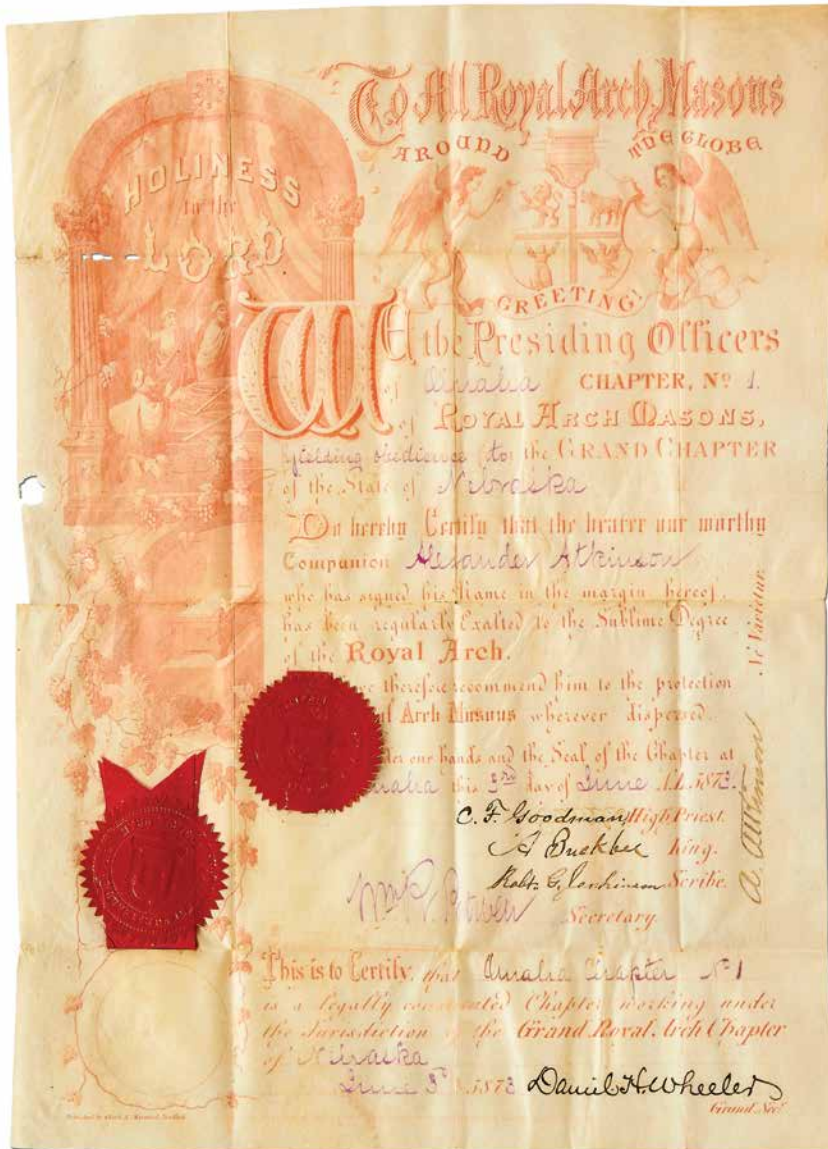 HOLINESS
to the
LORD
To All Royal Arch Masons
AROUND THE GLOBE
GREETING
WE the Presiding Officers
of Omaha CHAPTER, No 1.
of ROYAL ARCH MASONS,
yielding obedience to the GRAND CHAPTER
of the State of Nebraska
Do hereby Certify that the bearer our worthy
Companion Alexander Atkinson
who has signed his Name in the margin hereof,
has been regularly Exalted to the Sublime Degree
of the Royal Arch.
therefore recommend him to the protection
Arch Masons wherever dispersed.
our hands and the Seal of the Chapter at
Omaha this 3rd day of June A.L. 5873.
C. F. Goodman High Priest.
A Buckbee King.
Robt. C. Scribe.
Secretary
A. Atkinson Ne Varietur
This is to Certify, that Omaha Chapter No 1
is a legally constituted Chapter working under
the Jurisdiction of the Grand Royal Arch Chapter
of Nebraska
June 3d 5873 Daniel H. Wheeler
Grand Sec.